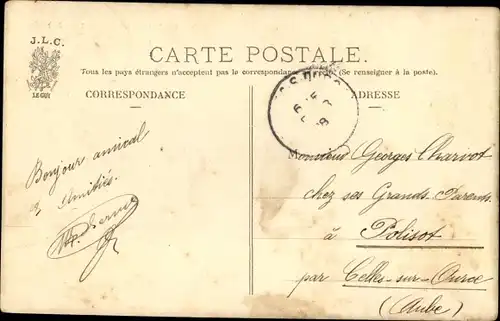 J.L.C.
CARTE POSTALE.
Tous les pays étrangers n'acceptent pas la correspondance (Se renseigner à la poste).
CORRESPONDANCE
ADRESSE
Bonjour amical
Amitiés.
Monsieur Georges Chariot
chez ses Grands Parents
à Polisot
par Celles-sur-Ource
(Aube)